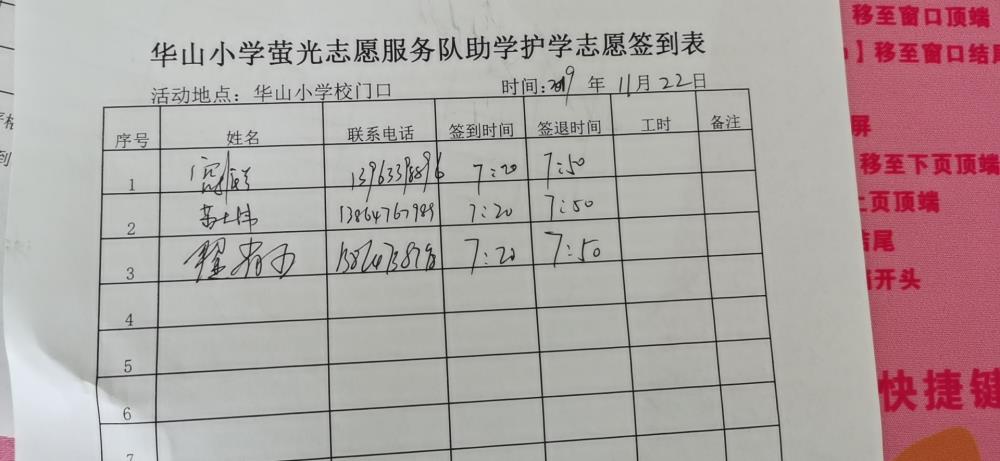 华山小学萤光志愿服务队助学护学志愿签到表
活动地点：华山小学校门口 时间：2019 年 11月 22日
序号 姓名 联系电话 签到时间 签退时间 工时 备注
1 7:20 7:50
2 13864767989 7:20 7:50
3 7:20 7:50
4
5
6
7
移至窗口顶端
】移至窗口结尾
屏
移至下页顶端
上页顶端
结尾
开头
快捷键